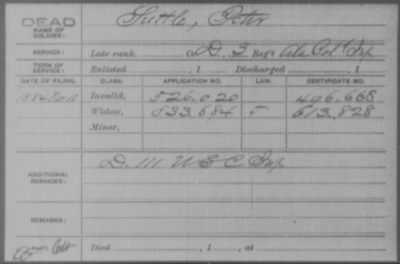 DEAD
NAME OF SOLDIER: Suttle, Peter
SERVICE: Late rank, D. 3 Reg't Ala Col'd Inf
TERM OF SERVICE: Enlisted , 1 Discharged , 1
DATE OF FILING. CLASS. APPLICATION NO. LAW. CERTIFICATE NO.
Invalid, 526.020 406.668
Widow, 833.684 613.828
Minor,
ADDITIONAL SERVICES: D. 111 U S C Inf
REMARKS:
Died , 1 , at